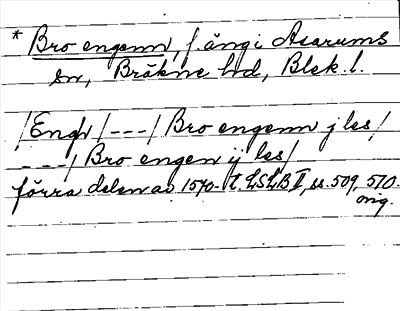 * Bro engenn, f. äng i Asarums
sn, Bräkne hd, Blek. l.
/Engh/ --- / Bro engenn j les/
--- / Bro engen ij les/
förra delen av 1500-t. LSLB II, ss. 509, 510.
orig.